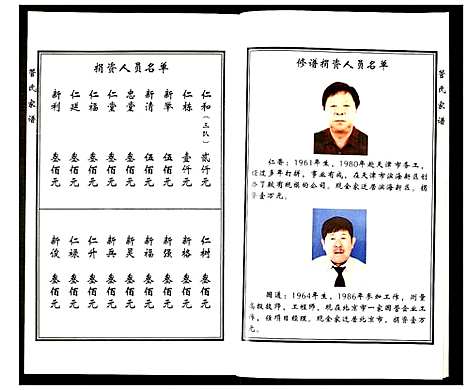 管氏家谱
修谱捐资人员名单
仁春：1961年生，1980年赴天津市务工，
经过多年打拼，事业有成，在天津市滨海新区创
办了颇有规模的公司。现全家迁居滨海新区。捐
资壹万元。
国通：1964年生，1986年参加工作，测量
高级技师，工程师，现在北京市一家国营企业工
作，任项目经理。现全家迁居北京市，捐资壹万
元。
捐资人员名单
仁和（三队） 贰仟元
仁栋 壹仟元
新攀 伍佰元
新清 伍佰元
忠堂 叁佰元
仁堂 叁佰元
仁福 叁佰元
仁廷 叁佰元
新利 叁佰元
仁树 叁佰元
新格 叁佰元
新强 叁佰元
新福 叁佰元
新昊 叁佰元
新兵 叁佰元
仁升 叁佰元
仁禄 叁佰元
新俊 叁佰元
管氏家谱